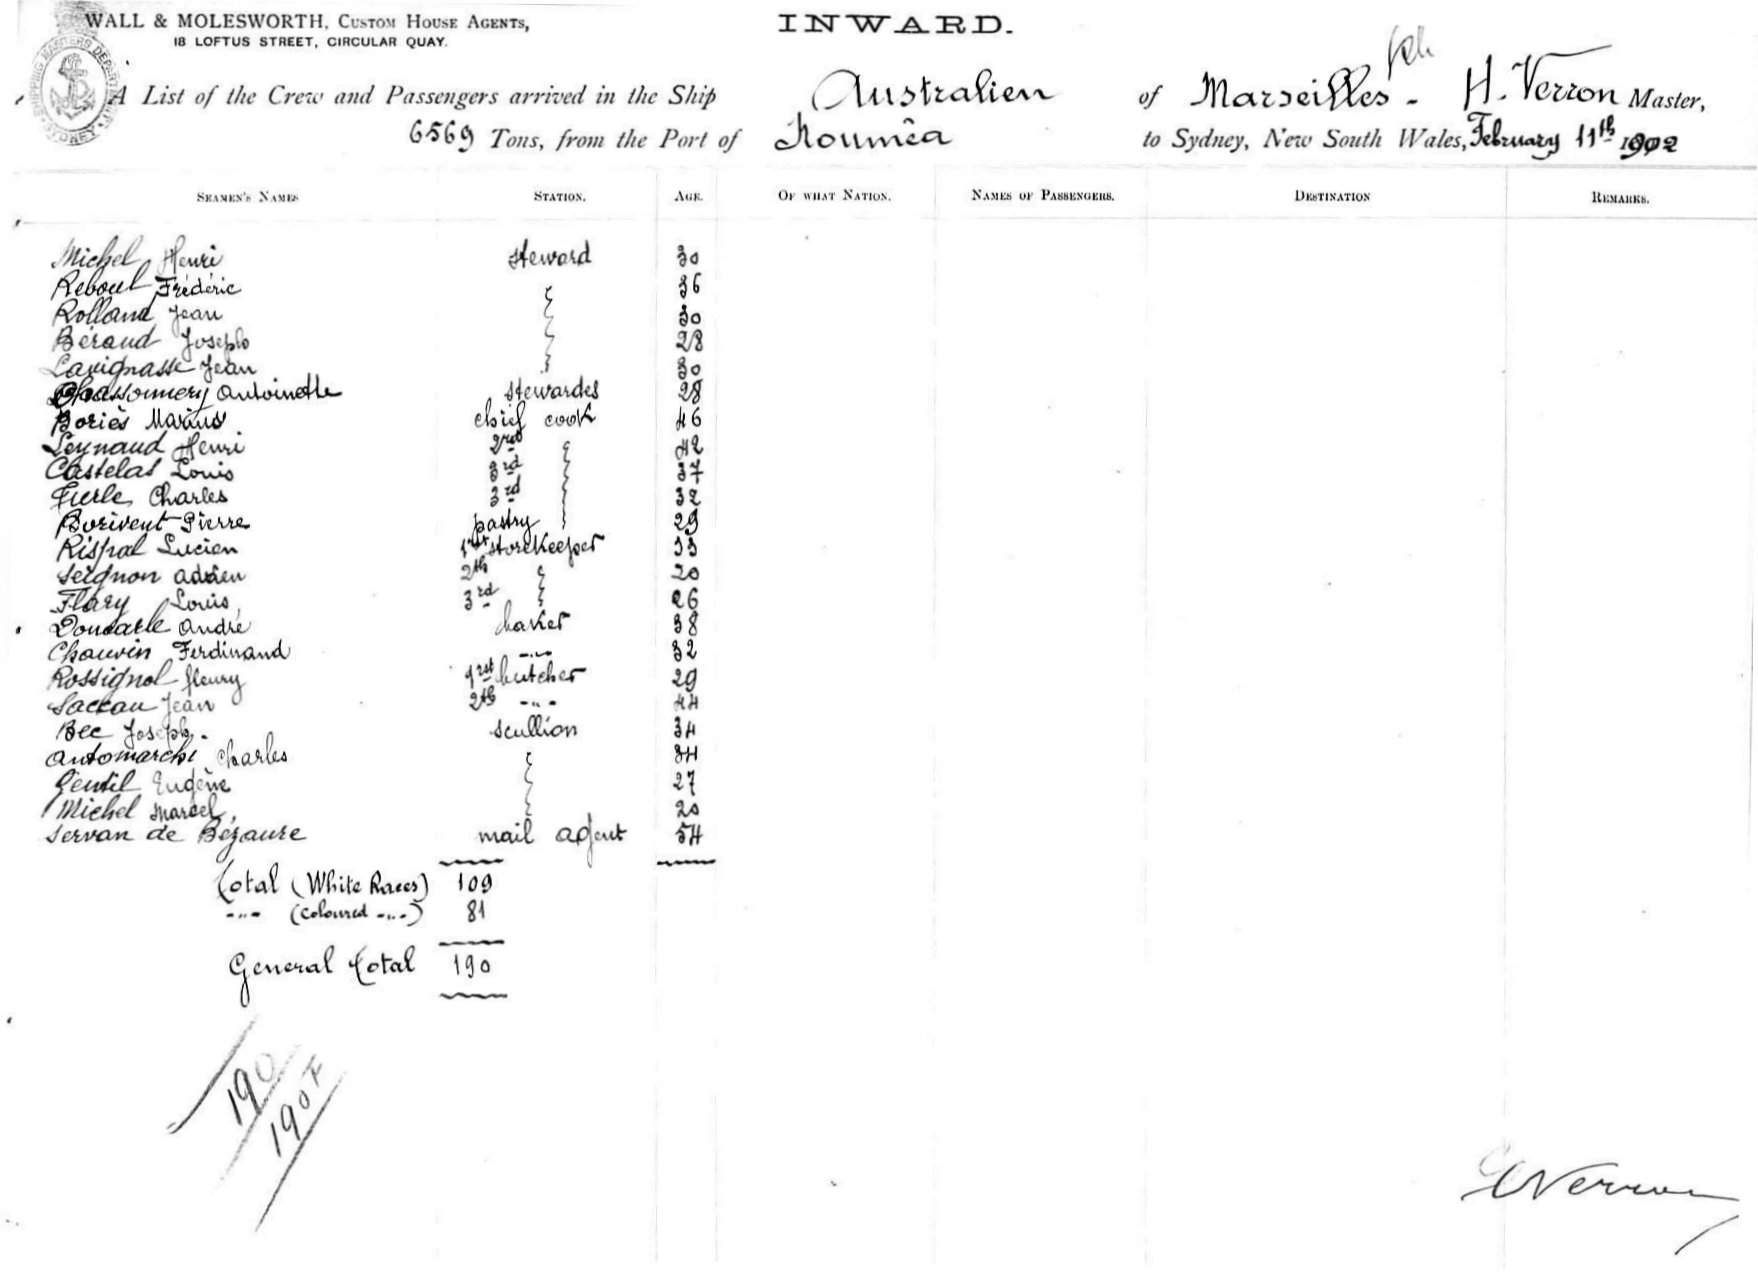 WALL & MOLESWORTH, CUSTOM HOUSE AGENTS,
18 LOFTUS STREET, CIRCULAR QUAY.
INWARD.
SHIPPING MASTERS DEPARTMENT SYDNEY
A List of the Crew and Passengers arrived in the Ship Australien of Marseilles - H. Verron Master,
6569 Tons, from the Port of Nouméa to Sydney, New South Wales, February 11th 1902
SEAMEN'S NAMES STATION. AGE. OF WHAT NATION. NAMES OF PASSENGERS. DESTINATION REMARKS.
Michel Henri steward 30
Reboul Frédéric 36
Rolland Jean 30
Béraud Joseph 28
Lavignasse Jean 30
Antoinette stewardes 28
Boriès Marius chief cook 46
Leynaud Henri 2nd 42
Castelas Louis 3rd 37
Charles 3rd 32
Borivent Pierre pastry 29
Rispal Lucien 1rst storekeeper 33
Seignon Adrien 2th 20
Flary Louis 3rd 26
André baker 38
Chauvin Ferdinand -"- 32
Rossignol fleury 1rst butcher 29
Jean 2th -"- 44
Bec Joseph. scullion 34
Antomarchi Charles 34
Gentil Eugène 27
Michel Marcel, 20
Servan de Bezaure mail agent 54
Total (White Races) 109
-"- (Coloured -"-) 81
General Total 190
190
190 F
Verron